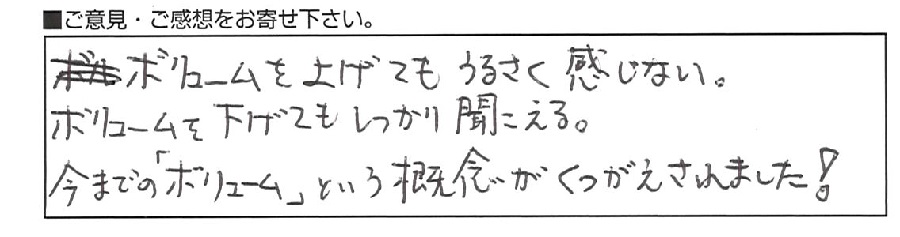 ■ご意見・ご感想をお寄せ下さい。
ボリュームを上げてもうるさく感じない。
ボリュームを下げてもしっかり聞こえる。
今までの「ボリューム」という概念がくつがえされました!